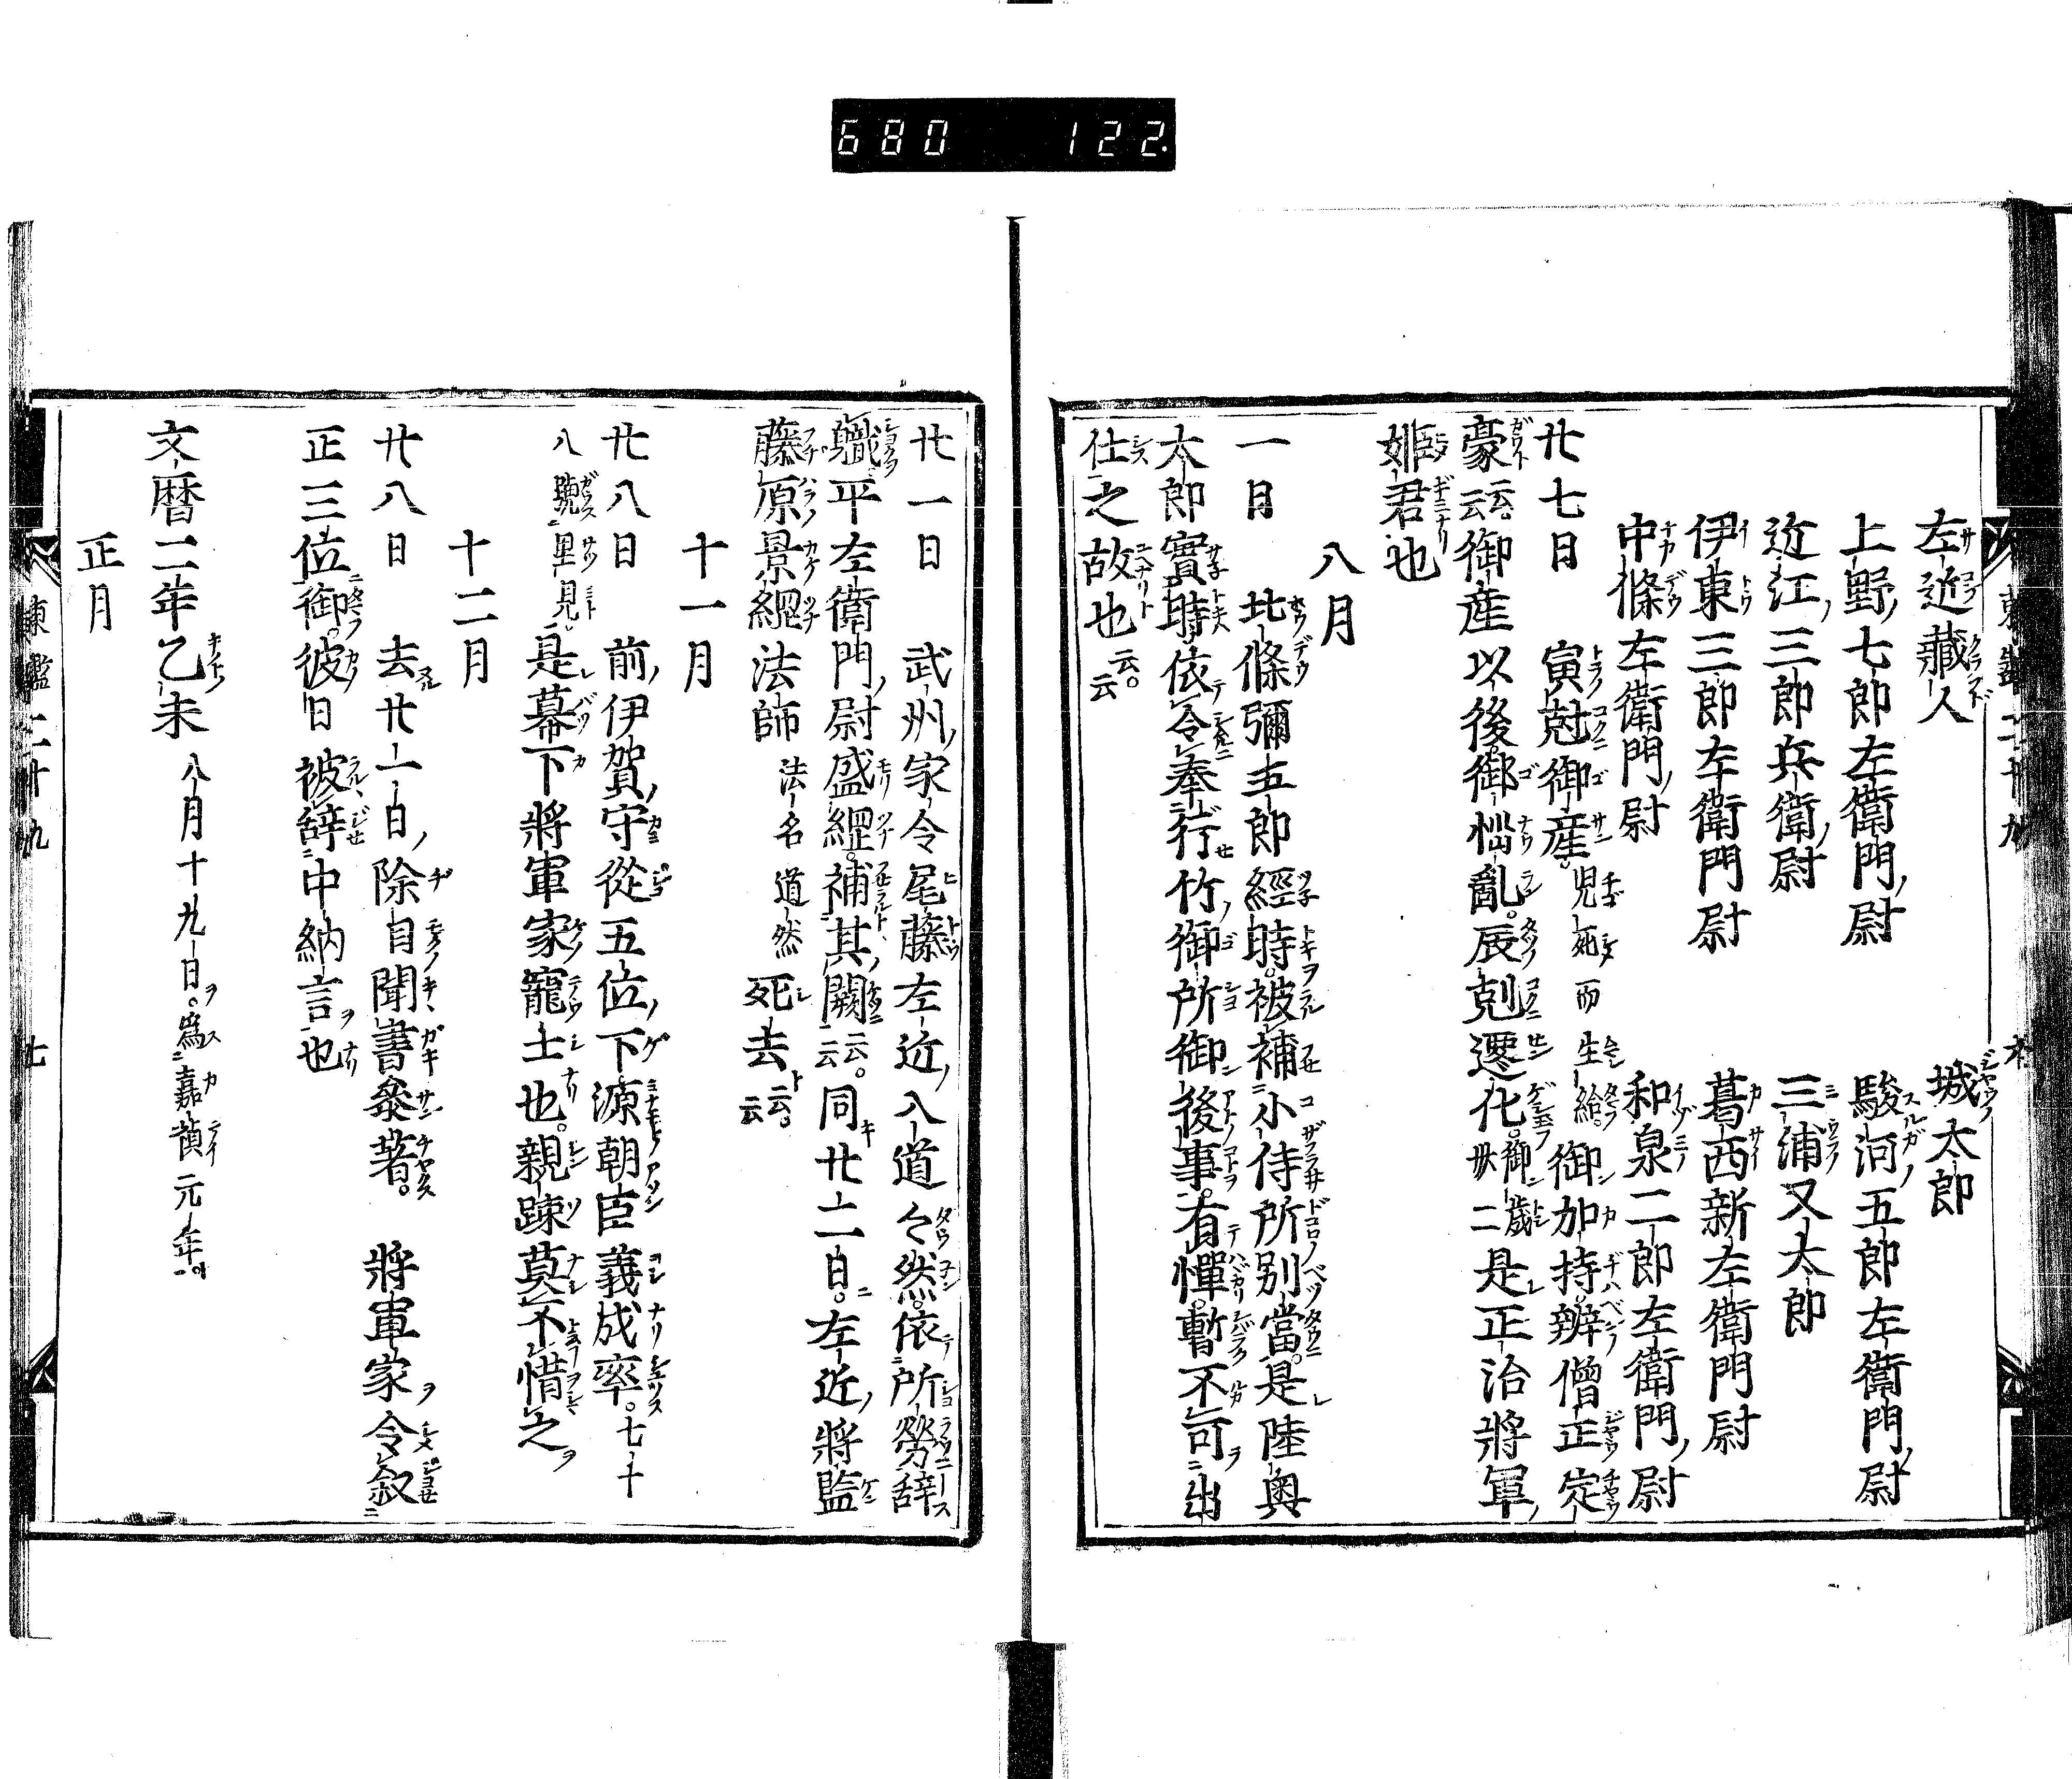 680 122.
左近藏人 城太郎
上野七郎左衛門尉 駿河五郎左衛門尉
近江三郎兵衛尉 三浦又太郎
伊東三郎左衛門尉 葛西新左衛門尉
中條左衛門尉 和泉二郎左衛門尉
廿七日 寅尅御産。児死而生給。御加持。辨僧正定
豪云云。御産以後。御惱亂。辰剋遷化。御歳卅二是正治將軍
姫君也
八月
一日 北條彌五郎經時。被補小侍所別當。是陸奥
太郎實時依令奉行竹御所御後事。有憚。暫不可出
仕之故也云云。
廿一日 武州家令尾藤左近入道々然。依所勞辞
軄。平左衛門尉盛綱。補其闕云云。同廿二日。左近將監
藤原景綱法師法名道然死去云云。
十一月
廿八日 前伊賀守從五位下源朝臣義成卒。七十
八號里見。是幕下將軍家寵士也。親踈莫不惜之
十二月
廿八日 去廿一日除目聞書參著。 將軍家令叙
正三位御。彼日被辞中納言也
文暦二年乙未八月十九日。爲嘉禎元年。
正月
東鑑二十九 七